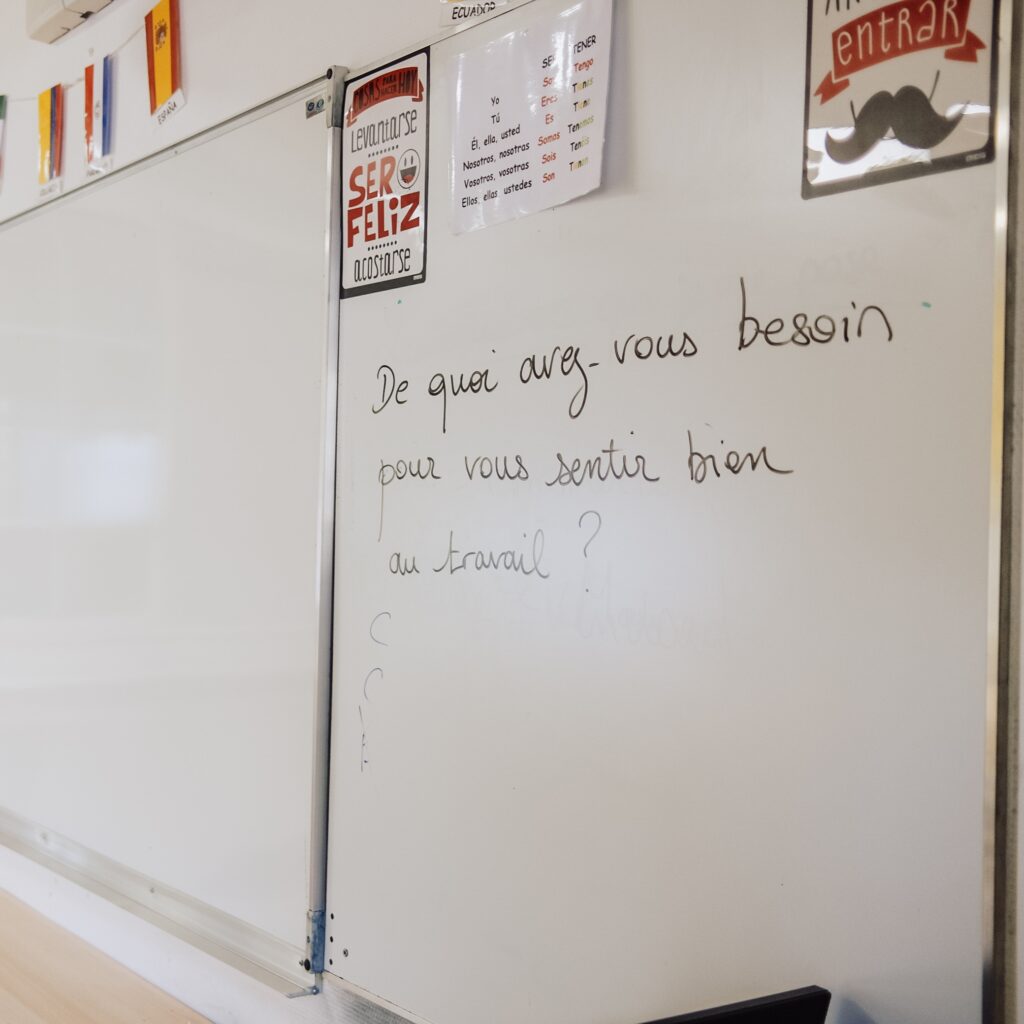 ECUADOR
ESPAÑA
COSAS PARA HACER HOY
Levantarse
SER
FELIZ
acostarse
SER TENER
Yo Soy Tengo
Tú Eres Tienes
Él, ella, usted Es Tiene
Nosotros, nosotras Somos Tenemos
Vosotros, vosotras Sois Tenéis
Ellos, ellas ustedes Son Tienen
entrar
De quoi avez-vous besoin
pour vous sentir bien
au travail ?